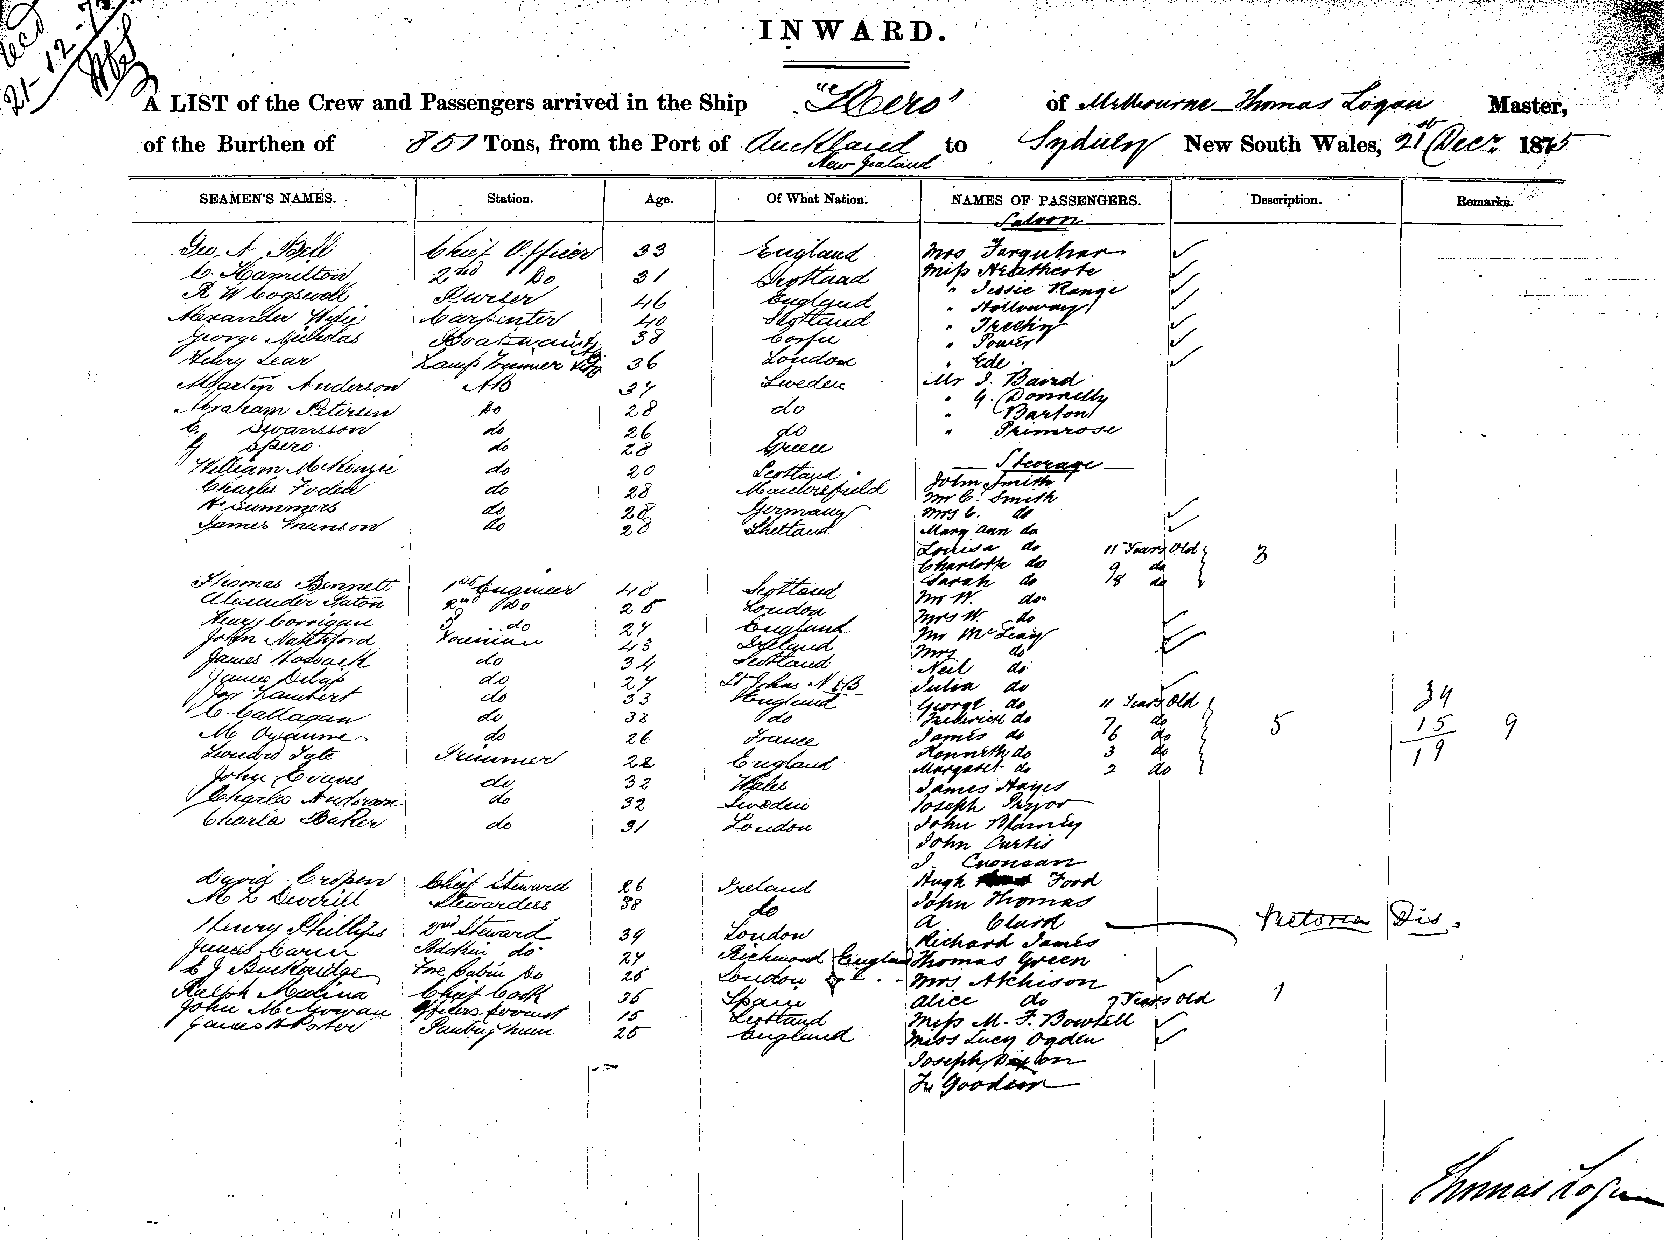 21-12-75
INWARD.
A LIST of the Crew and Passengers arrived in the Ship "Hero" of Melbourne Thomas Logan Master,
of the Burthen of Tons, from the Port of Auckland to Sydney New South Wales, 21st Decr 1875
New Zealand
SEAMEN'S NAMES. Station. Age. Of What Nation. NAMES OF PASSENGERS. Description. Remarks.
Saloon
Geo. A. Bell Chief Officer 33 England Mrs Farquhar
C. Hamilton 2nd Do 31 Scotland Miss Heathcote
R W Cogswell Purser 46 England " Jessie Range
Alexander Wylie Carpenter 40 Scotland " Holloway
George Nicholas Boatswain 38 Corfu "
Henry Lear Lamp Trimmer 36 London " Power
" Ede
Martin Anderson AB Sweden Mr J. Baird
Abraham Petersen Do 28 do " G. Donnelly
C. Swansson do 26 do " Barton
G Spero do 28 Greece " Primrose
William McKenzie do 20 Scotland Steerage
Charles Foden do 28 Macclesfield John Smith
H Summers do 28 Germany Mr C. Smith
James Munson do 28 Shetland Mrs C. do
Mary Ann do
Louisa do 11 Years Old 3
Charlotte do 9 do
Thomas Bennett 1st Engineer 40 Scotland Sarah do do
Alexander Seton 2nd Do 25 London Mr W. do
Henry Corrigan 3 do England Mrs W. do
John Fireman 43 Ireland Mr McLeay
James do 34 Scotland Mrs do
James Delap do St Johns N.B. Neil do
Jos Lambert do 33 England Julia do
C Callagan do 32 do George do 11 Years Old 34
M do 26 France Frederick do 7 do 5 15 9
James do 6 do 19
Trimmer 22 England Kenneth do 3 do
John Evans do 32 Wales Margaret do 2 do
Charles Anderson do 32 Sweden James Hayes
Charles Baker do 31 London Joseph Pryor
John Blamey
John Curtis
J.
David Chief Steward 26 Ireland Hugh Ford
M L Deverill Stewardess 38 do John Thomas
Henry Phillips 2nd Steward 39 London A Clura Victoria Dis.
James do Richmond England Richard James
E J Buckeridge Fore Cabin Do 25 London Thomas Green
Ralph Medina Chief Cook 35 Spain Mrs Atchison
John McGowan Officers Servant 15 Scotland Alice do 7 Years old 1
James H Porter Pantryman 25 England Miss M. F. Bowtell
Miss Lucy Ogden
Joseph Dixon
Goodson
Thomas Logan